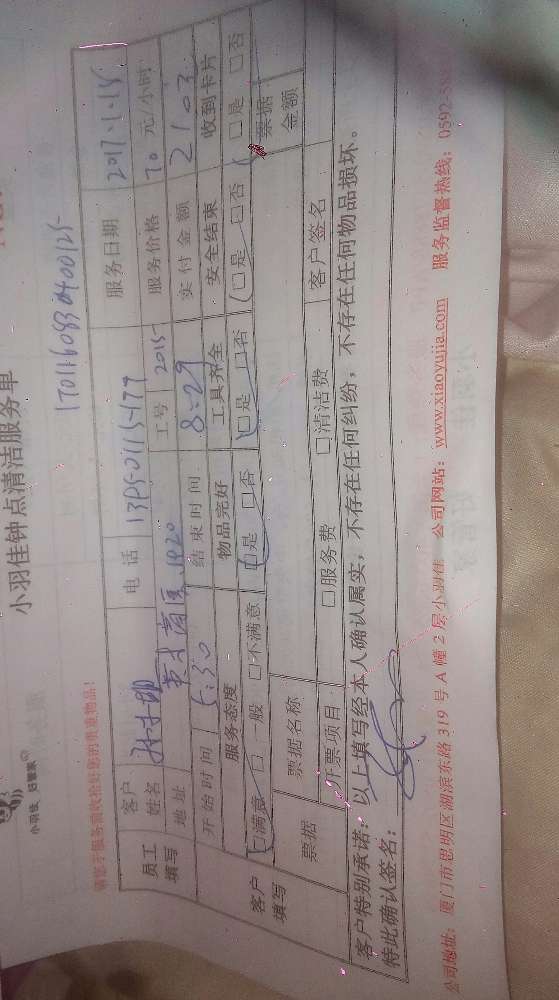 小羽佳 好管家
小羽佳钟点清洁服务单
170116083040012
请您于服务前收拾好您的贵重物品!
员工填写 客户姓名 电话 服务日期 2017.1.15
地址 1920 工号 2015 服务价格 70 元/小时
开始时间 5:30 结束时间 8:29 实付金额 210
客户填写 服务态度 物品完好 工具齐全 安全结束 收到卡片
□满意 □一般 □不满意 □是 □否 □是 □否 □是 □否 □是 □否
票据 票据名称 票据金额
开票项目 □服务费 □清洁费 客户签名
客户特别承诺:以上填写经本人确认属实,不存在任何纠纷,不存在任何物品损坏。
特此确认签名:
公司地址:厦门市思明区湖滨东路319号A幢2层小羽佳 公司网站:www.xiaoyujia.com 服务监督热线:0592-